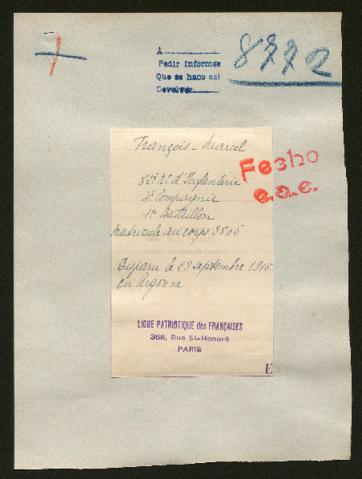 A
Pedir informes
Que se haco asi
Devolver
8772
François - Marcel
Fecho
e.a.e.
d'Infanterie
4e Compagnie
1er Bataillon
Matricule au corps 3806
Disparu le 29 septembre 1915
en Argonne
LIGUE PATRIOTIQUE des FRANÇAISES
368, Rue St-Honoré
PARIS
E